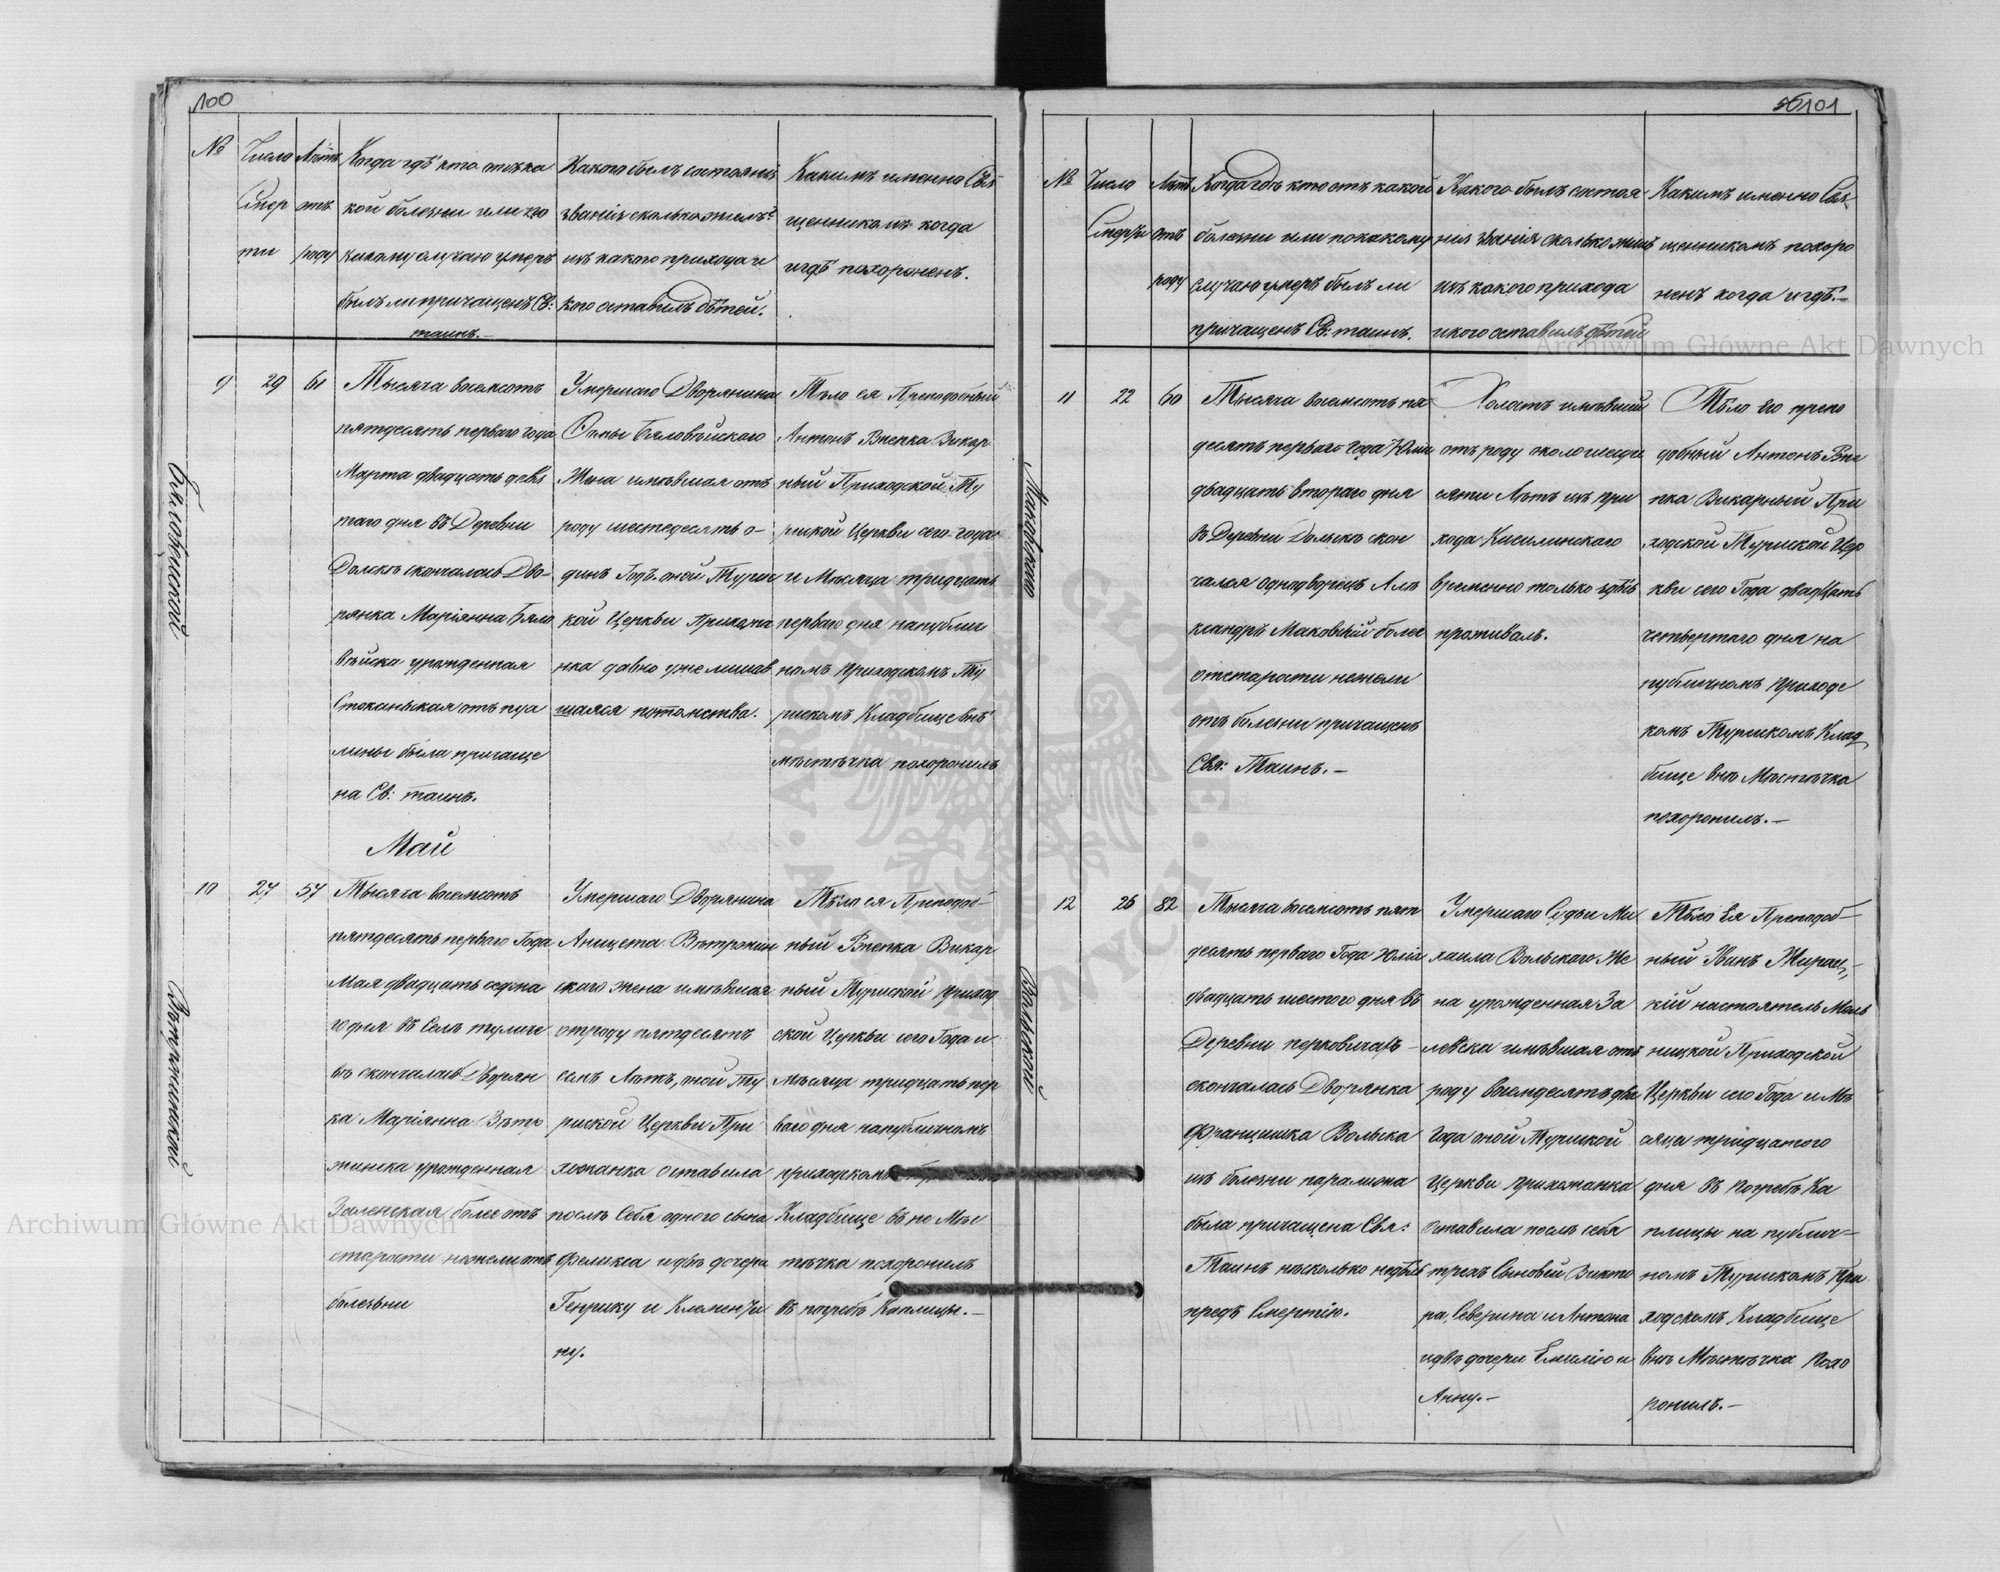 100
№
Число Смерти
Лѣтъ отъ роду
Когда гдѣ кто отъ ка
кой болезни или по ка
кому случаю умеръ
былъ ли причащенъ Св:
таинъ.—
Какого былъ состоянія
званія сколько жилъ
изъ какого прихода и
кого оставилъ дѣтей.
Какимъ именно Свя
щенникомъ когда
и гдѣ похороненъ.
Бѣловѣйской
9
29
61
Тысяча восемсотъ
пятдесятъ перваго года
Марта двадцать девя
таго дня въ Деревни
Долскъ скончалась Дво-
рянка Маріянна Бяло
вѣйска урожденная
отъ пуа
лины была причаще
на Св: таинъ.
Умершаго Дворянина
Бяловѣйского
Жена имѣвшая отъ
роду шестдесятъ о-
динъ Годъ оной Турис
кой Церкви Прихожа
нка давно уже лишив
шаяся потомства.
Тѣло ея Преподобный
Антонъ Впепка Викар
ный Приходской Ту
риской Церкви сего года
и Мѣсяца тридцать
перваго дня на публич
номъ Приходскомъ Ту
рискомъ Кладбище внѣ
мѣстѣчка похоронилъ
Май
10
27
57
Тысяча восемсотъ
пятдесятъ перваго Года
Мая двадцать седма
го дня въ Селѣ туличе
въ скончалась Дворян
ка Маріянна Вѣтр
жинска урожденная
Зеленская болѣе отъ
старости нежели отъ
болезьни
Умершаго Дворянина
Аницета Вѣтрожин
скаго жена имѣвшая
отроду пятдесятъ
семъ Лѣтъ, оной Ту
риской Церкви При
хожанка оставила
послѣ Себя одного сына
Феликса и двѣ дочери
Генрику и Клементи
ну.
Тѣло ея Преподоб-
ный Впепка Викар
ный Туриской Приход
ской Церкви сего Года и
Мѣсяца тридцать пер
ваго дня на публичномъ
приходскомъ
Кладбище внѣ Мѣс
тѣчка похоронилъ
въ погребѣ Каплицы.—
56 101
№
Число Смерти
Лѣтъ отъ роду
Когда гдѣ кто отъ какой
болезни или по какому
случаю умеръ былъ ли
причащенъ Св: таинъ.
Какого былъ состоя
нія званія сколько жилъ
изъ какого прихода
и кого оставилъ дѣтей
Какимъ именно Свя
щенникомъ похоро
ненъ когда и гдѣ.—
Маковскаго
11
22
60
Тысяча восемсотъ пя
десятъ перваго Года Юлія
двадцать втораго дня
въ Деревни Дольскъ скон
чался однодворецъ Але
ксандръ Маковскій болѣе
отстарости нежели
отъ болезни причащенъ
Свя: Таинъ.—
Холостъ имѣвшій
отъ роду около шесде
сяти Лѣтъ изъ при
хода Киселинскаго
временно только здѣсь
проживалъ.
Тѣло Его препо
добный Антонъ Впе
пка Викарный При
ходской Туриской Цер
кви сего Года двадцать
четвертаго дня на
публичномъ приходс
комъ Турискомъ Клад
бище внѣ Мѣстѣчка
похоронилъ.—
Вольской
12
26
82
Тысяча восемсотъ пят
десятъ перваго Года Юлія
двадцать шестого дня въ
Деревни перковичахъ
скончалась Дворянка
Францишка Вольска
изъ болезни паралижа
была причащена Свя:
Таинъ нѣсколько недѣль
предъ Смертію.
Умершаго Судьи Ми
хаила Вольскаго Же
на урожденная За
левска имѣвшая отъ
роду восемдесятъ два
Года оной Туриской
Церкви прихожанка
Оставила послѣ себя
трехъ Сыновей Викто
ра, Северина и Антона
и двѣ дочери Емилію и
Анну.—
Тѣло Ея Преподоб-
ный Іванъ Жираец-
кій настоятель Мель
ницкой Приходской
Церкви сего Года и Мѣ
сяца тридцатого
дня въ погребѣ Ка
плицы на публич-
номъ Турискомъ При
ходскомъ Кладбище
внѣ Мѣстѣчка Похо
ронилъ.—
Вѣтржинской
Archiwum Główne Akt Dawnych
Archiwum Główne Akt Dawnych